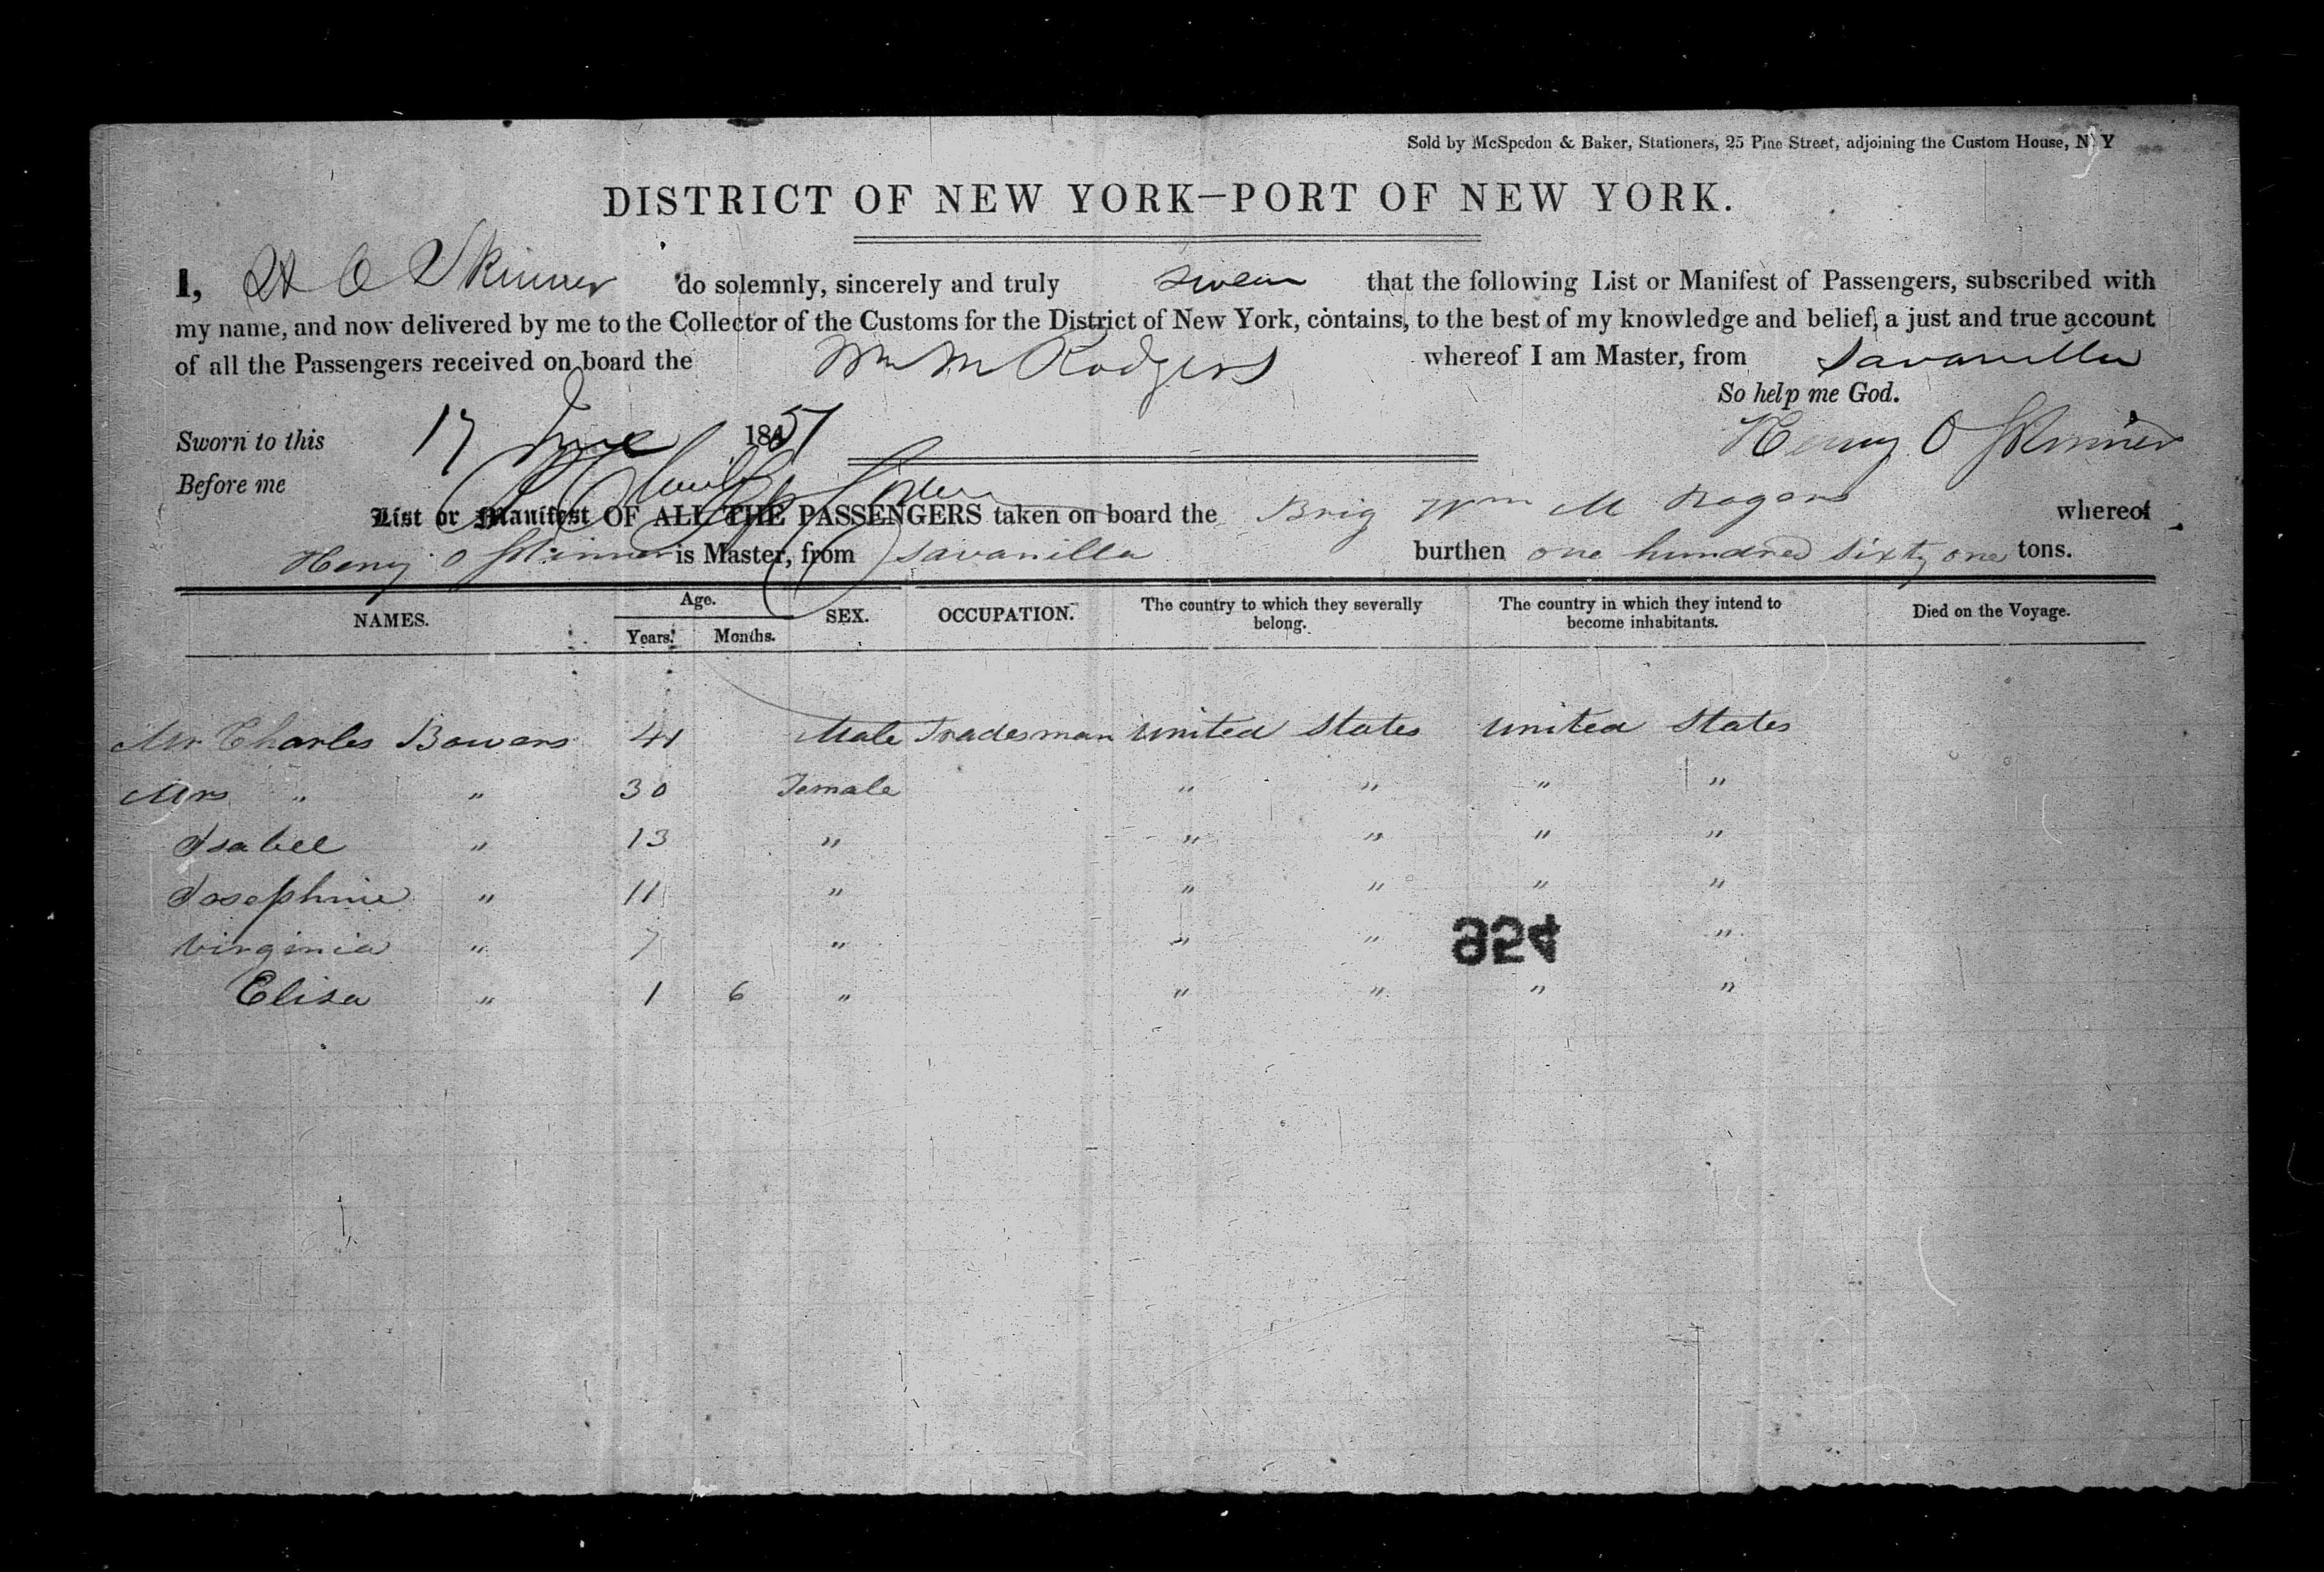 Sold by McSpedon & Baker, Stationers, 25 Pine Street, adjoining the Custom House, N Y
DISTRICT OF NEW YORK—PORT OF NEW YORK.
I, H O Skinner do solemnly, sincerely and truly swear that the following List or Manifest of Passengers, subscribed with
my name, and now delivered by me to the Collector of the Customs for the District of New York, contains, to the best of my knowledge and belief, a just and true account
of all the Passengers received on board the Wm M Rodgers whereof I am Master, from Savanilla
So help me God.
Sworn to this 17 June 1851 Henry O Skinner
Before me
List or Manifest OF ALL THE PASSENGERS taken on board the Brig Wm M Rogers whereof
Henry O Skinner is Master, from Savanilla burthen one hundred sixty one tons.
NAMES. Age. Years. Months. SEX. OCCUPATION. The country to which they severally belong. The country in which they intend to become inhabitants. Died on the Voyage.
Mr Charles Bowers 41 Male Tradesman United States United States
Mrs " " 30 Female " " " "
Isabel " 13 " " " " "
Josephine " 11 " " " " "
Virginia " 7 " " " "
Elisa " 1 6 " " " " "